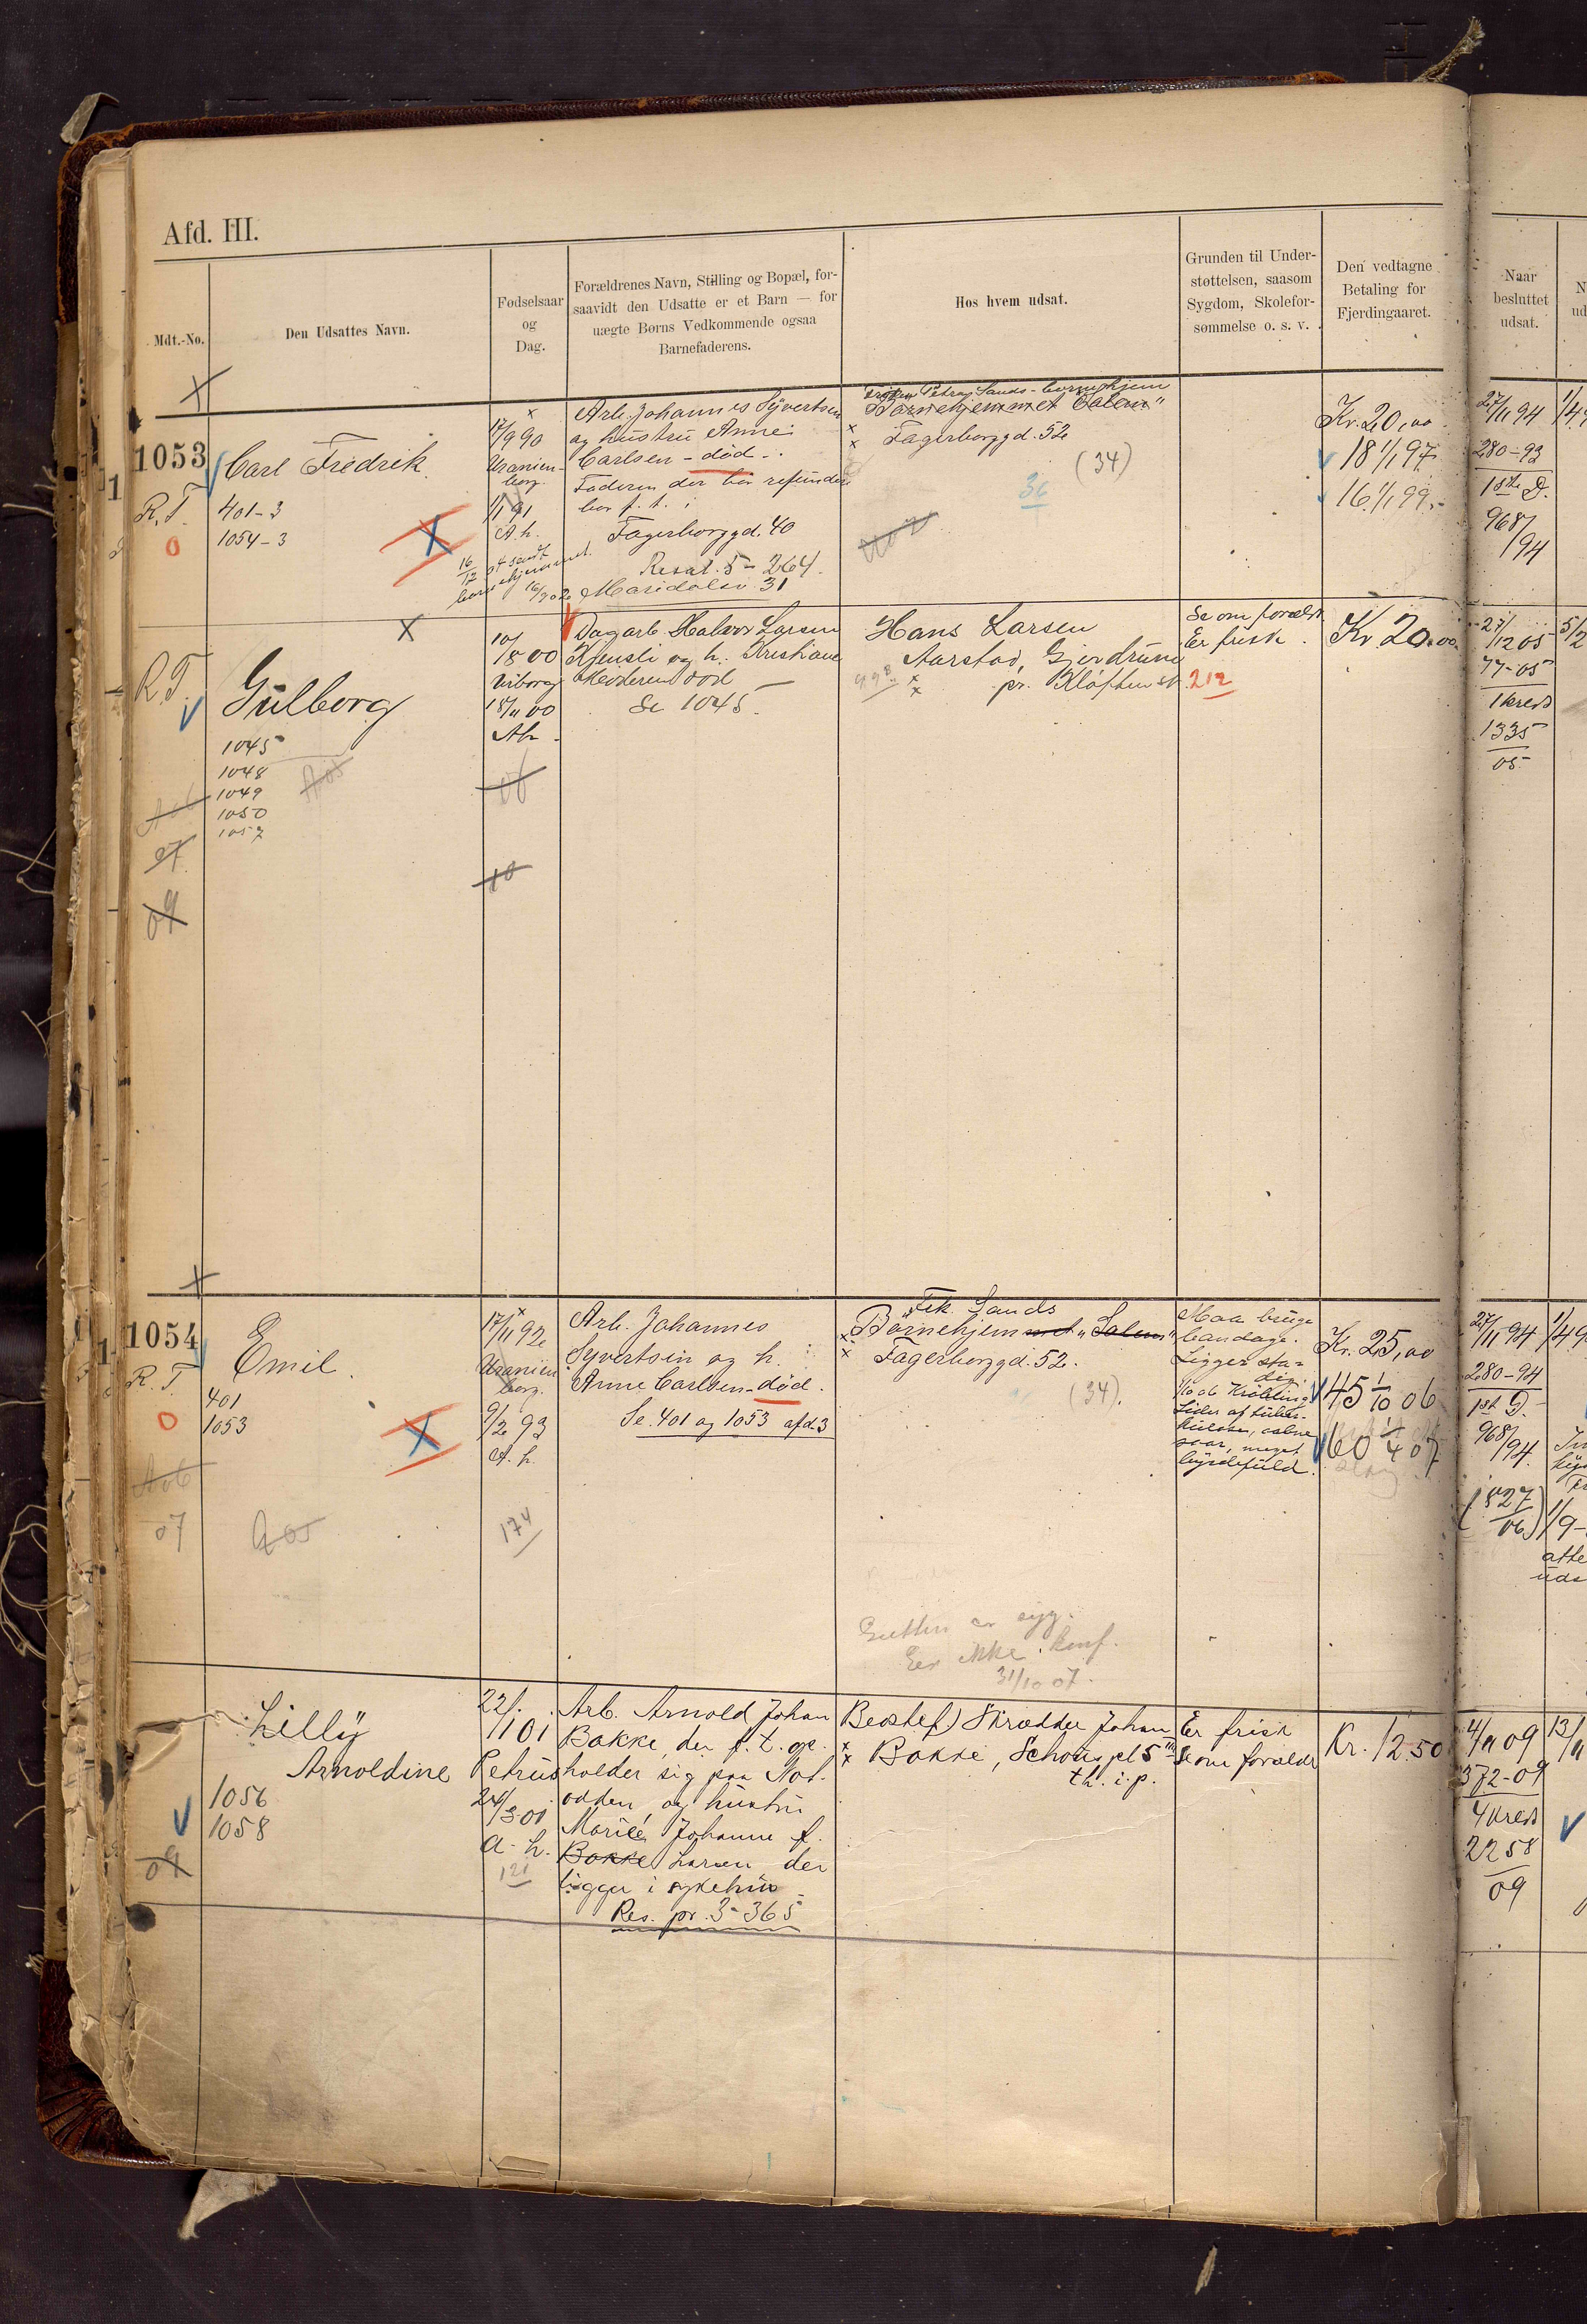 Afd. III.
Mdt.-No.
Den Udsattes Navn.
Fødselsaar
og
Dag.
Forældrenes Navn, Stilling og Bopæl, for-
saavidt den Udsatte er et Barn — for
uægte Børns Vedkommende ogsaa
Barnefaderens.
Hos hvem udsat.
Grunden til Under-
støttelsen, saasom
Sygdom, Skolefor-
sømmelse o. s. v.
Den vedtagne
Betaling for
Fjerdingaaret.
Naar
besluttet
udsat.
1053
R.T.
0
Carl Fredrik
401-3
1054-3
17/9 90
Uranien-
borg
1/1 91
A. h.
Arb. Johannes Syvertsen
og hustru Anne
Carlsen - død -
Faderen der bør refundere
bor p. t. i
Fagerborggd. 40
Resol. 5 - 264.
Maridalsv. 31
Frøken Petra Sands børnehjem
Børnehjemmet "Salem"
Fagerborggd. 52
(34)
36
Kr. 20,00
18 1/1 97
16 1/1 99
27/11 94
280-93
1ste D.
968/
/94
R.T.
Gulborg
1045
1048
1049
1050
1057
07
09
10/
1800
Viborg
18/11 00
Ah
Dagarb Halvor Larsen
Kjensli og h. Kristiane
Moderen død
Se 1045
Hans Larsen
Aarstad, Gjerdrum
pr. Kløften st.
Se om forældr
Er frisk.
212
Kr 20.00
27/
12 05
77-05
1 kreds
1335
05
1054
R.T.
0
Emil.
401
1053
07
17/11 92
Uranien
borg.
9/2 93
A. h.
174
Arb. Johannes
Syvertsen og h.
Anne Carlsen - død.
Se 401 og 1053 afd. 3
Frk. Sands
Børnehjemmet "Salem"
Fagerborggd. 52.
(34).
Maa bruge
bandage.
Ligger sta-
dig.
1/10 06 Krøbling
Lider af tuber-
kulose, aabne
saar, meget
byrdefuld.
Kr. 25,00
45 1/10 06
60 1/4 07
27/11 94
280-94
1st D.
968/
94.
(827
06)
Gutten er syg.
Er ikke konf.
31/10 07.
Lilly
Arnoldine
1056
1058
09
22/
1 01
Petrus
24/3 01
a. h.
121
Arb. Arnold Johan
Bakke, der p. t. op-
holder sig paa Not-
odden, og hustru
Marie Johanne f.
Bakke Larsen, der
ligger i sykehus
Res. pr. 3 - 365
Bestef) Skrædder Johan
Bakke, Schous pl 5 III
th. i. p.
Er frisk
Se om forældr
Kr. 12.50
4/11 09
372-09
4 kreds
2258
09